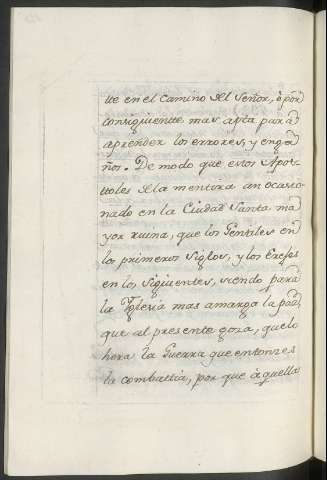 te en el camino del Señor, ò por
consiguiente mas apta para
aprender los errores, y enga
ños. De modo que estos Apos-
toles de la mentira an ocasio-
nado en la Ciudad Santa ma
yor ruina, que los Gentiles en
los primeros siglos, y los Erejes
en los siguientes, siendo para
la Yglesia mas amarga la paz,
que al presente goza, que lo
hera la Guerra que entonzes
la combattia, por que àquella